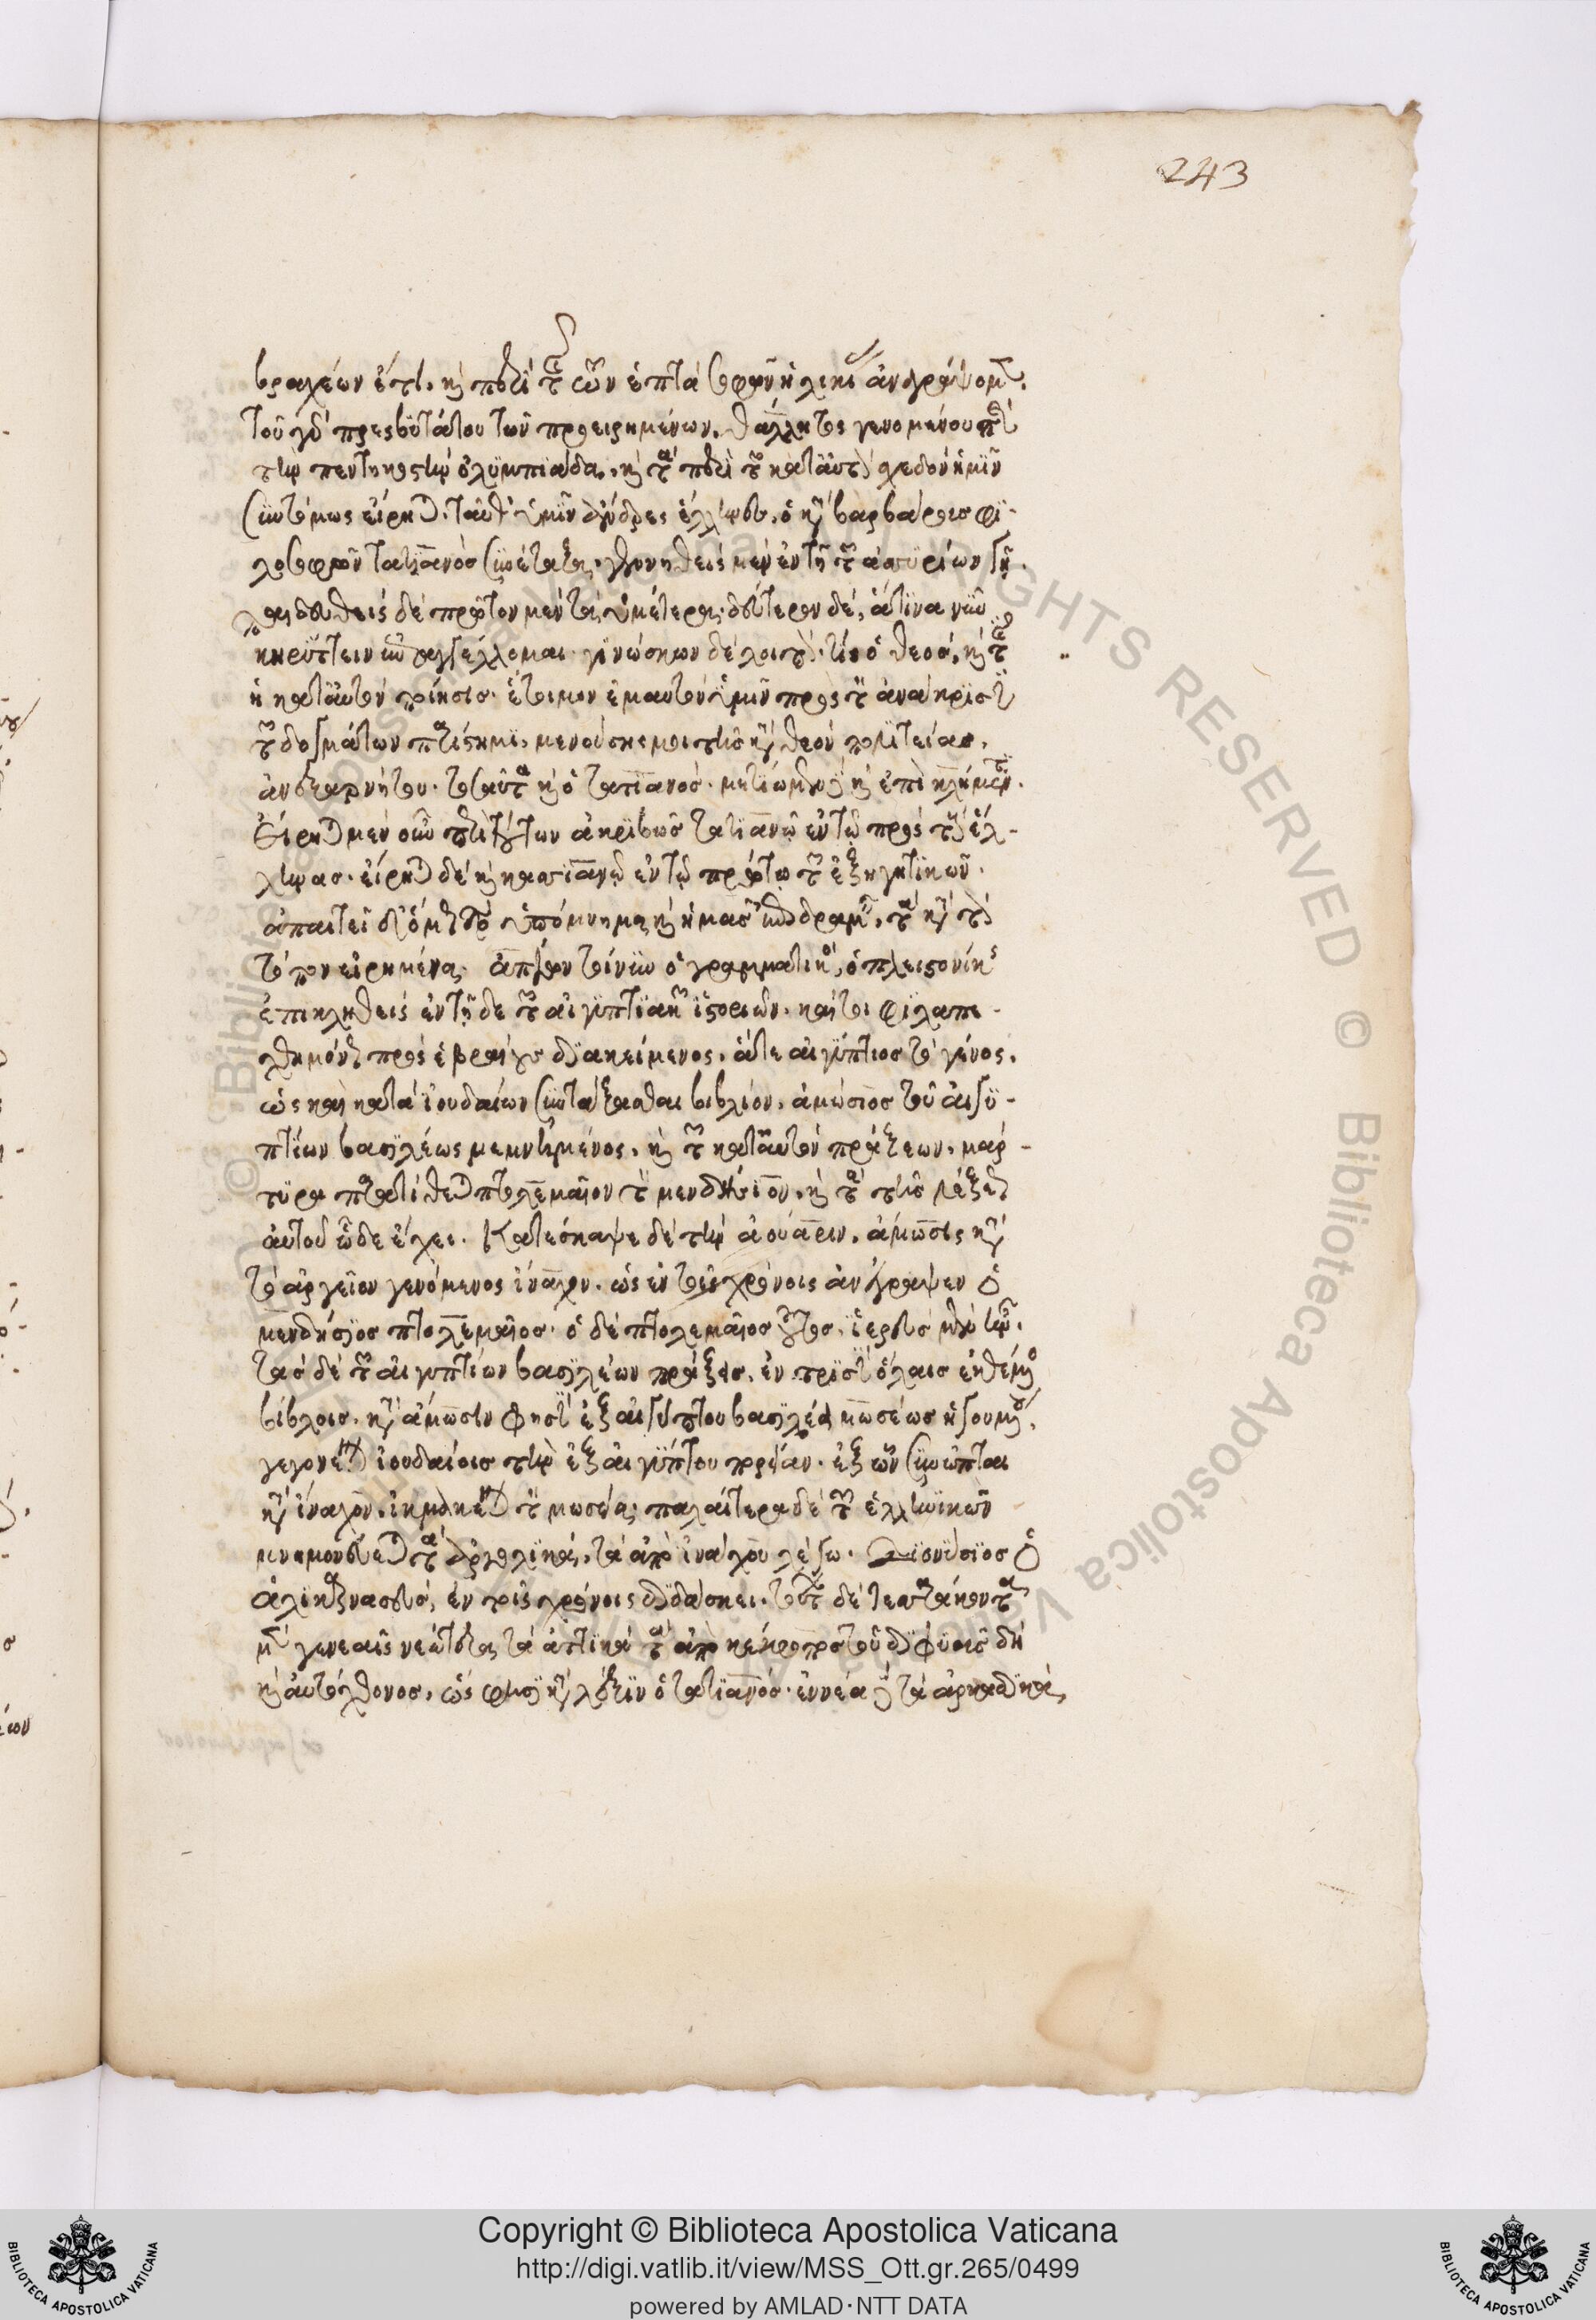 243
βραχέων ἐστί. καὶ περὶ τῆς τῶν ἑπτὰ σοφῶν ἡλικίας ἀναγράψομεν.
τοῦ γὰρ πρεσβυτάτου τῶν προειρημένων, θάλλητος γενομένου περὶ
τὴν πεντηκοστὴν ὀλυμπιάδα, καὶ τὰ περὶ τῶν κατ' αὐτὸν σχεδὸν ἡμῖν
συντόμως εἴρηται. ταῦθ' ὑμῖν ἄνδρες ἕλληνες, ὁ κατὰ βαρβάρους φι-
λοσοφῶν τατιανὸς συνέταξα. γεννηθεὶς μὲν ἐν τῇ τῶν ἀσσυρίων γῇ.
παιδευθεὶς δὲ πρῶτον μὲν τὰ ὑμέτερα. δεύτερον δὲ, ἅτινα νῦν
κηρύττειν ἐπαγγέλλομαι. γινώσκων δὲ λοιπὸν τίς ὁ θεός, καὶ τίς
ἡ κατ' αὐτὸν ποίησις. ἕτοιμον ἐμαυτὸν ὑμῖν πρὸς τὴν ἀνάκρισιν
τῶν δογμάτων παρίστημι, μενούσης μοι τῆς κατὰ θεὸν πολιτείας,
ἀνεξαρνήτου. τοσαῦτα καὶ ὁ τατιανός. μετίωμεν δὲ καὶ ἐπὶ κλήμεντα.
Εἴρηται μὲν οὖν περὶ τούτων ἀκριβῶς τατιανῷ ἐν τῷ πρὸς τοὺς ἕλ-
ληνας. εἴρηται δὲ καὶ κασιανῷ ἐν τῷ πρώτῳ τῶν ἐξηγητικῶν.
ἀπαιτεῖ δ' ὅμως τὸ ὑπόμνημα καὶ ἡμᾶς ἐπιδραμεῖν, τὰ κατὰ τὸν
τόπον εἰρημένα. ἀπίων τοίνυν ὁ γραμματικὸς, ὁ πλειστονίκης
ἐπικληθεὶς ἐν τῇ δε τῶν αἰγυπτιακῶν ἱστοριῶν. καίτοι φιλαπε-
χθημόνως πρὸς ἑβραίους διακείμενος, ἅτε αἰγύπτιος τὸ γένος,
ὡς καὶ κατὰ ἰουδαίων συντάξασθαι βιβλίον, ἀμώσιος τοῦ αἰγυ-
πτίων βασιλέως μεμνημένος, καὶ τῶν κατ' αὐτὸν πράξεων, μάρ-
τυρα παρατίθεται πτολεμαῖον τὸν μενδήσιον, καὶ τὰ τῆς λέξεως
αὐτοῦ ὧδε ἔχει. Κατέσκαψε δὲ τὴν ἀουάριν, ἄμωσις κατὰ
τὸ ἀργεῖον γενόμενος ἴναχον. ὡς ἐν τοῖς χρόνοις ἀνέγραψεν ὁ
μενδήσιος πτολεμαῖος. ὁ δὲ πτολεμαῖος οὗτος, ἱερεὺς μὲν ἦν.
τὰς δὲ τῶν αἰγυπτίων βασιλέων πράξεις, ἐν τρισὶν ὅλαις ἐκθέμενος
βίβλοις. κατὰ ἄμωσιν φησὶν ἐξ αἰγύπτου βασιλέα μωσέως ἡγουμένου,
γεγονέναι ἰουδαίοις τὴν ἐξ αἰγύπτου πορείαν. ἐξ ὧν συνῶπται
κατὰ ἴναχον, ἠκμακέναι τὸν μωσέα. παλαίτερα δὲ τῶν ἑλληνικῶν
μνημονεύεται τὰ ἀργολικά, τὰ ἀπὸ ἰνάχου λέγω. Διονύσιος ὁ
ἁλικαρνασσεὺς, ἐν τοῖς χρόνοις διδάσκει. τούτων δὲ τεσσαράκοντα
μὲν γενεαῖς νεώτερα τὰ ἀττικὰ τὰ ἀπὸ κέκροπος τοῦ διφυοῦς δὴ
καὶ αὐτόχθονος, ὥς φησι κατὰ λέξιν ὁ τατιανός. ἐννέα δὲ τὰ ἀρκαδικά,
Copyright © Biblioteca Apostolica Vaticana
http://digi.vatlib.it/view/MSS_Ott.gr.265/0499
powered by AMLAD·NTT DATA